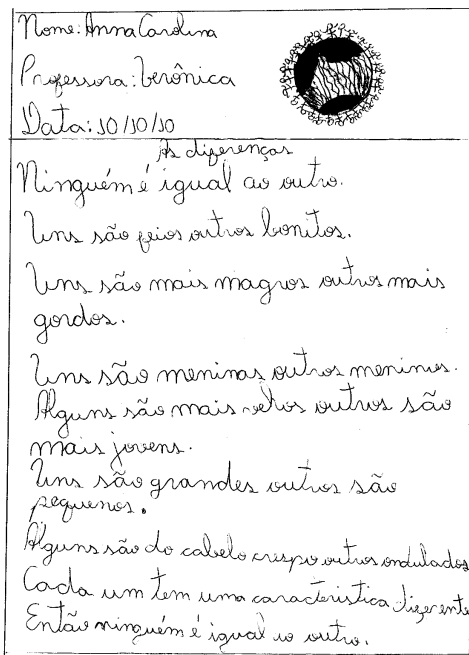 Nome: Anna Carolina
Professora: Verônica
Data: 10/10/10
As diferenças
Ninguém é igual ao outro.
Uns são feios outros bonitos.
Uns são mais magros outros mais
gordos.
Uns são meninas outros meninos.
Alguns são mais velhos outros são
mais jovens.
Uns são grandes outros são
pequenos.
Alguns são do cabelo crespo outros ondulados
Cada um tem uma caracteristica diferente
Então ninguém é igual ao outro.